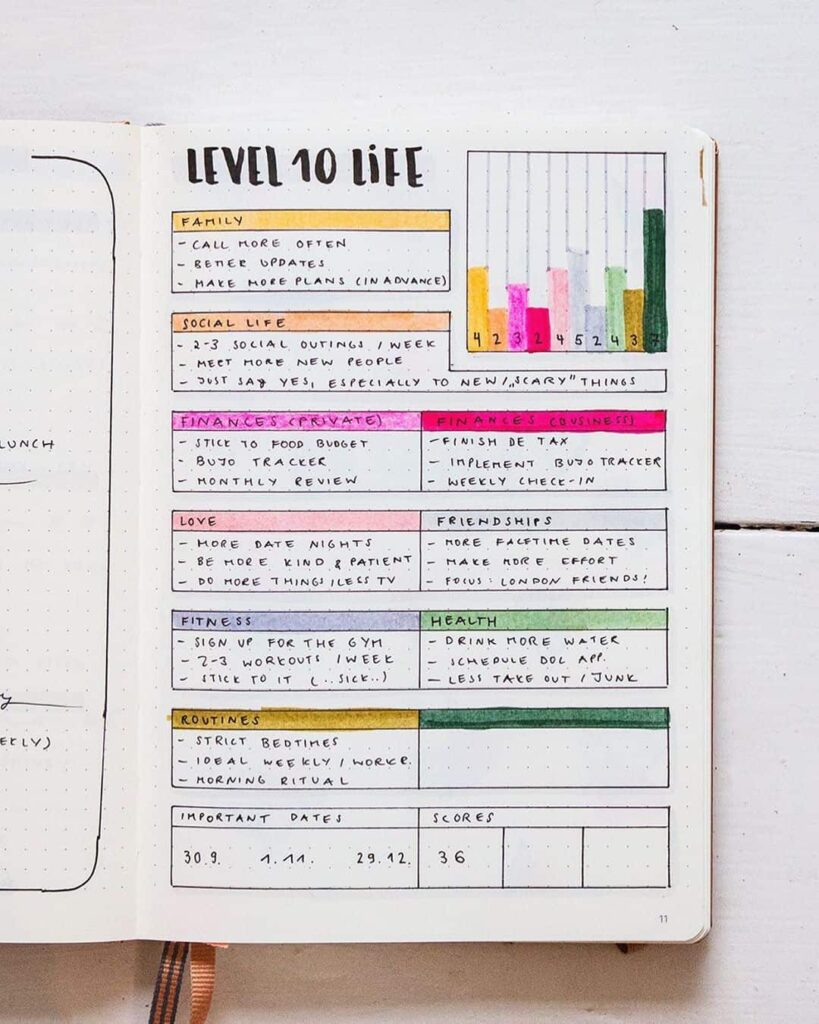 LEVEL 10 LIFE
FAMILY
- CALL MORE OFTEN
- BETTER UPDATES
- MAKE MORE PLANS (IN ADVANCE)
4 2 3 2 4 5 2 4 3 7
SOCIAL LIFE
- 2-3 SOCIAL OUTINGS / WEEK
- MEET MORE NEW PEOPLE
- JUST SAY YES, ESPECIALLY TO NEW / „SCARY" THINGS
FINANCES (PRIVATE)
- STICK TO FOOD BUDGET
- BUJO TRACKER
- MONTHLY REVIEW
FINANCES (BUSINESS)
- FINISH DE TAX
- IMPLEMENT BUJO TRACKER
- WEEKLY CHECK-IN
LOVE
- MORE DATE NIGHTS
- BE MORE KIND & PATIENT
- DO MORE THINGS / LESS TV
FRIENDSHIPS
- MORE FACETIME DATES
- MAKE MORE EFFORT
- FOCUS: LONDON FRIENDS!
FITNESS
- SIGN UP FOR THE GYM
- 2-3 WORKOUTS / WEEK
- STICK TO IT (..SICK..)
HEALTH
- DRINK MORE WATER
- SCHEDULE DOC APP.
- LESS TAKE OUT / JUNK
ROUTINES
- STRICT BEDTIMES
- IDEAL WEEKLY / WORKR.
- MORNING RITUAL
IMPORTANT DATES
30.9. 1.11. 29.12.
SCORES
36
11